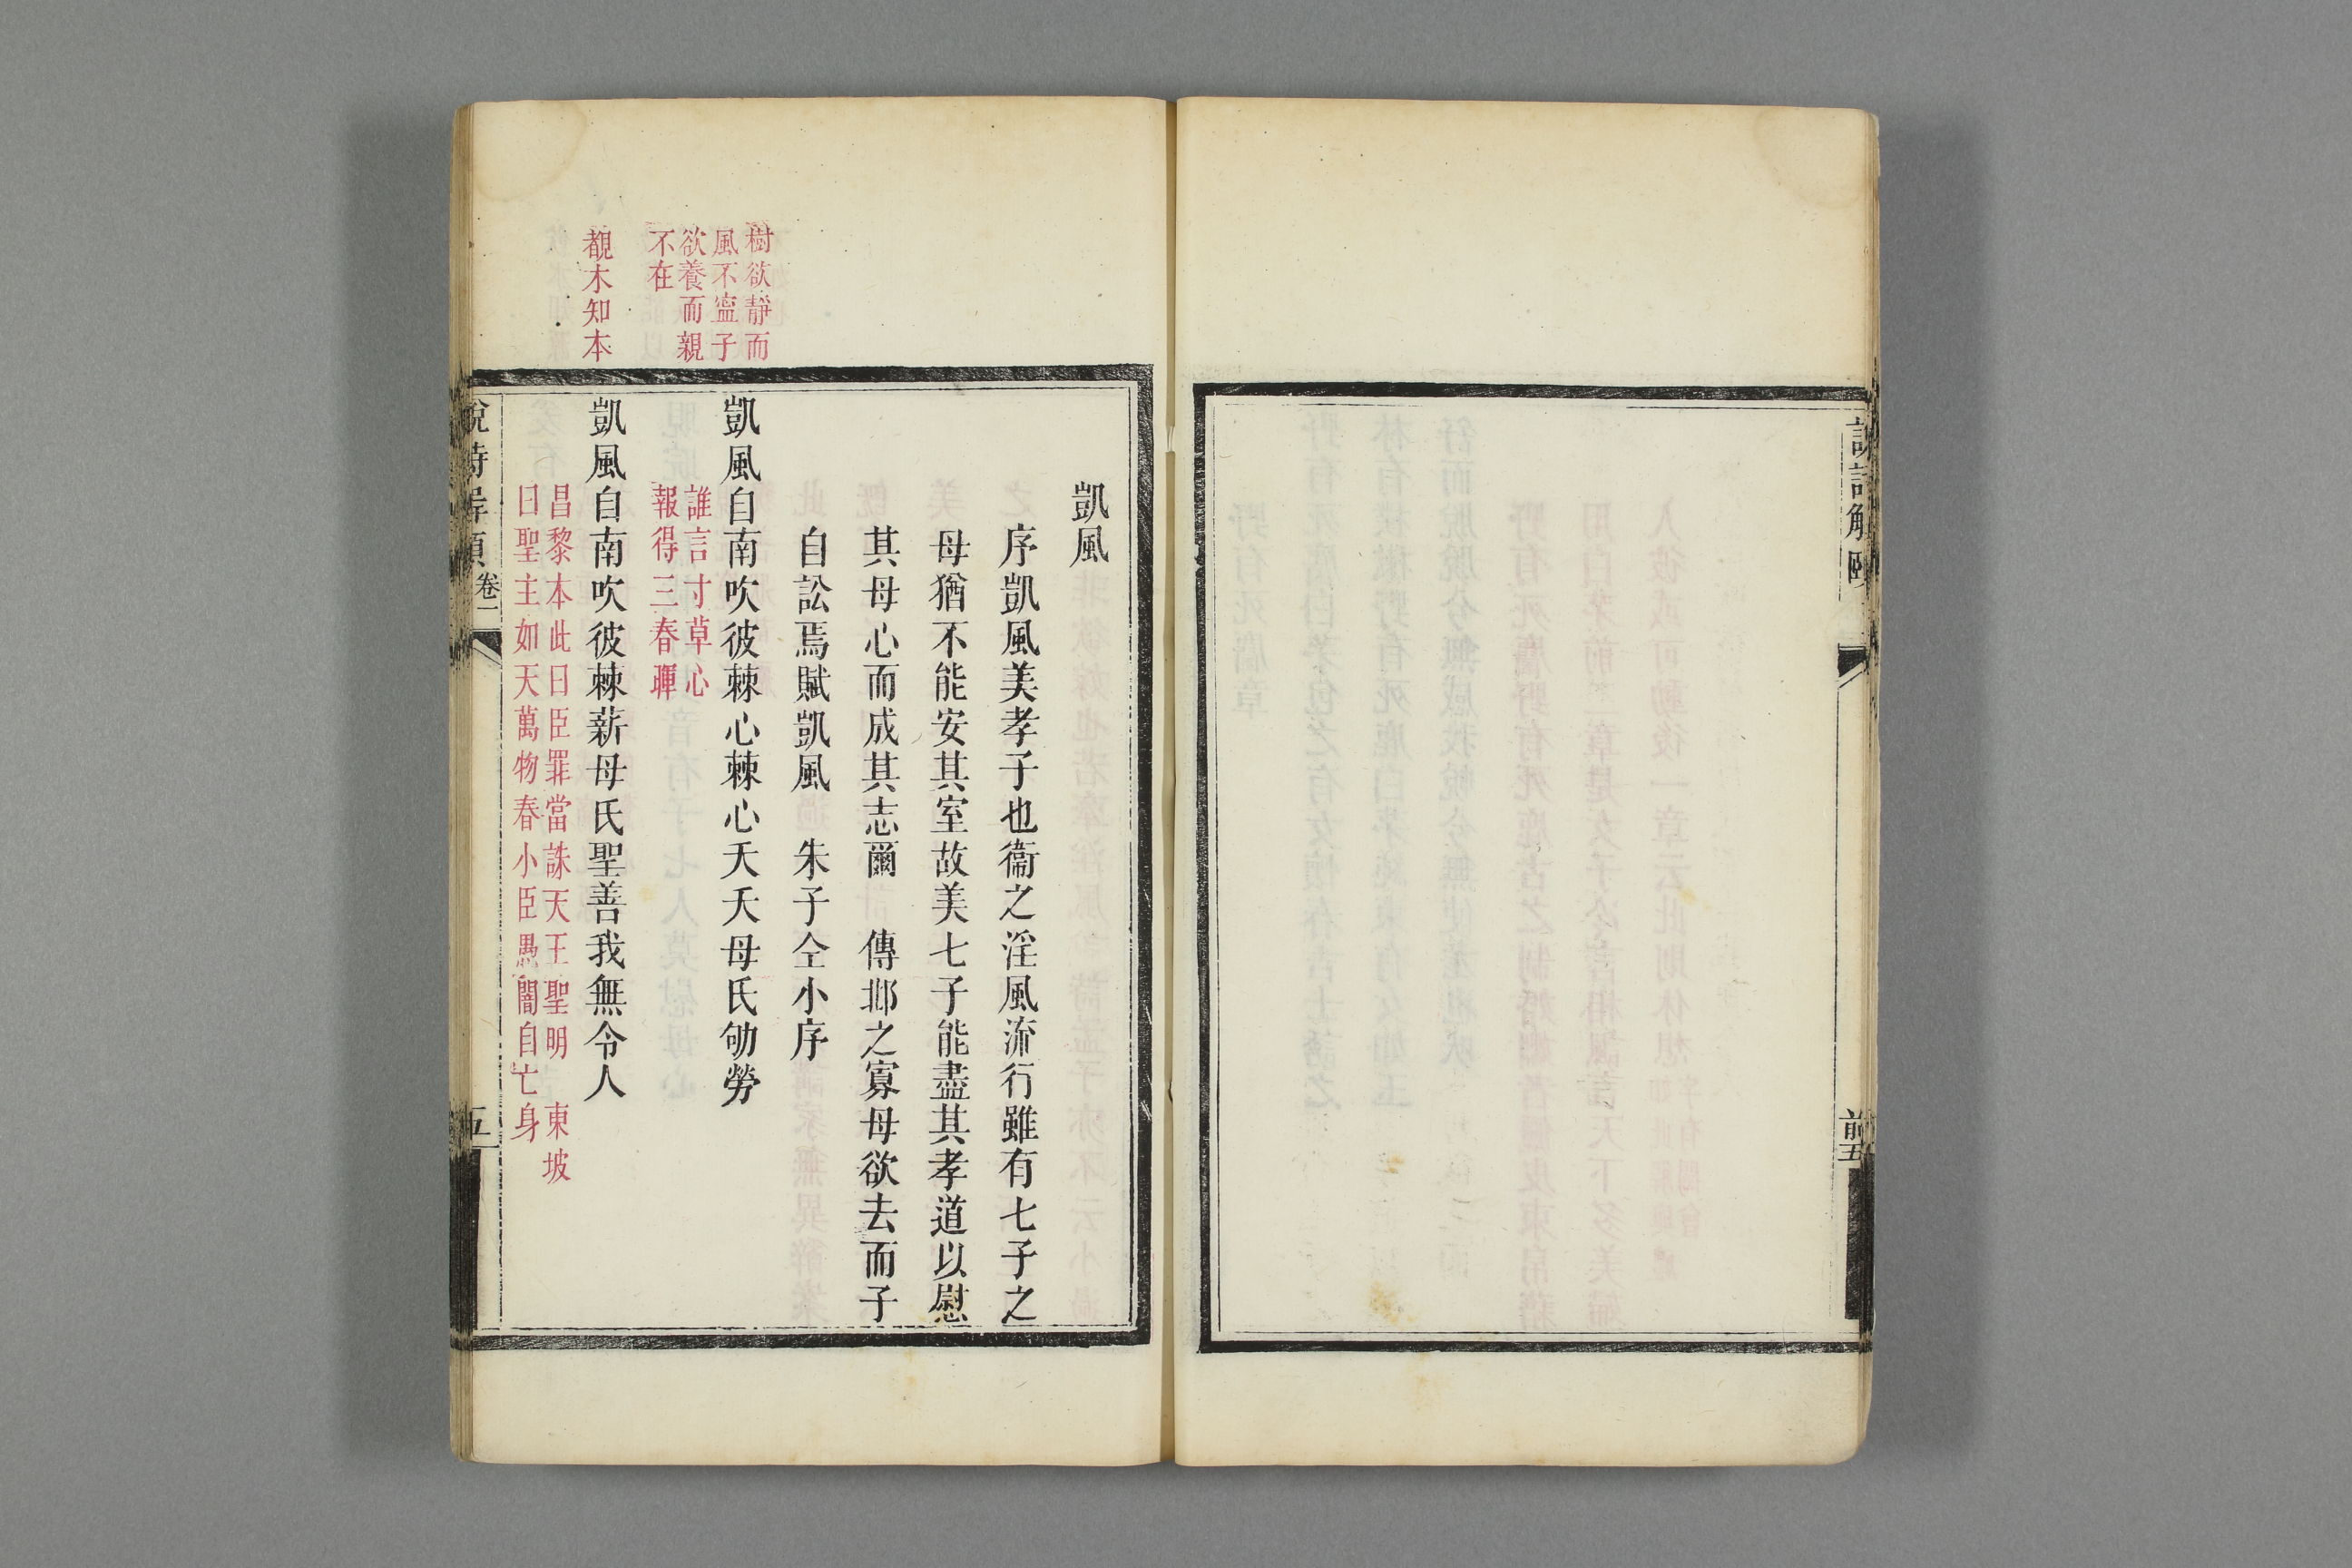 凱風
序凱風美孝子也衞之淫風流行雖有七子之
母猶不能安其室故美七子能盡其孝道以慰
其母心而成其志爾　傳鄁之寡母欲去而子
自訟焉賦凱風　朱子仝小序
樹欲靜而
風不寍子
欲養而親
不在
凱風自南吹彼棘心棘心夭夭母氏劬勞
誰言寸草心
報得三春暉
覩木知本
凱風自南吹彼棘薪母氏聖善我無令人
昌黎本此曰臣罪當誅天王聖明　東坡
曰聖主如天萬物春小臣愚闇自亡身
卷一
五